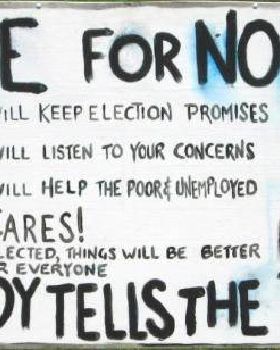 E FOR NO
ILL KEEP ELECTION PROMISES
ILL LISTEN TO YOUR CONCERNS
ILL HELP THE POOR & UNEMPLOYED
CARES!
LECTED, THINGS WILL BE BETTER
R EVERYONE
DY TELLS THE